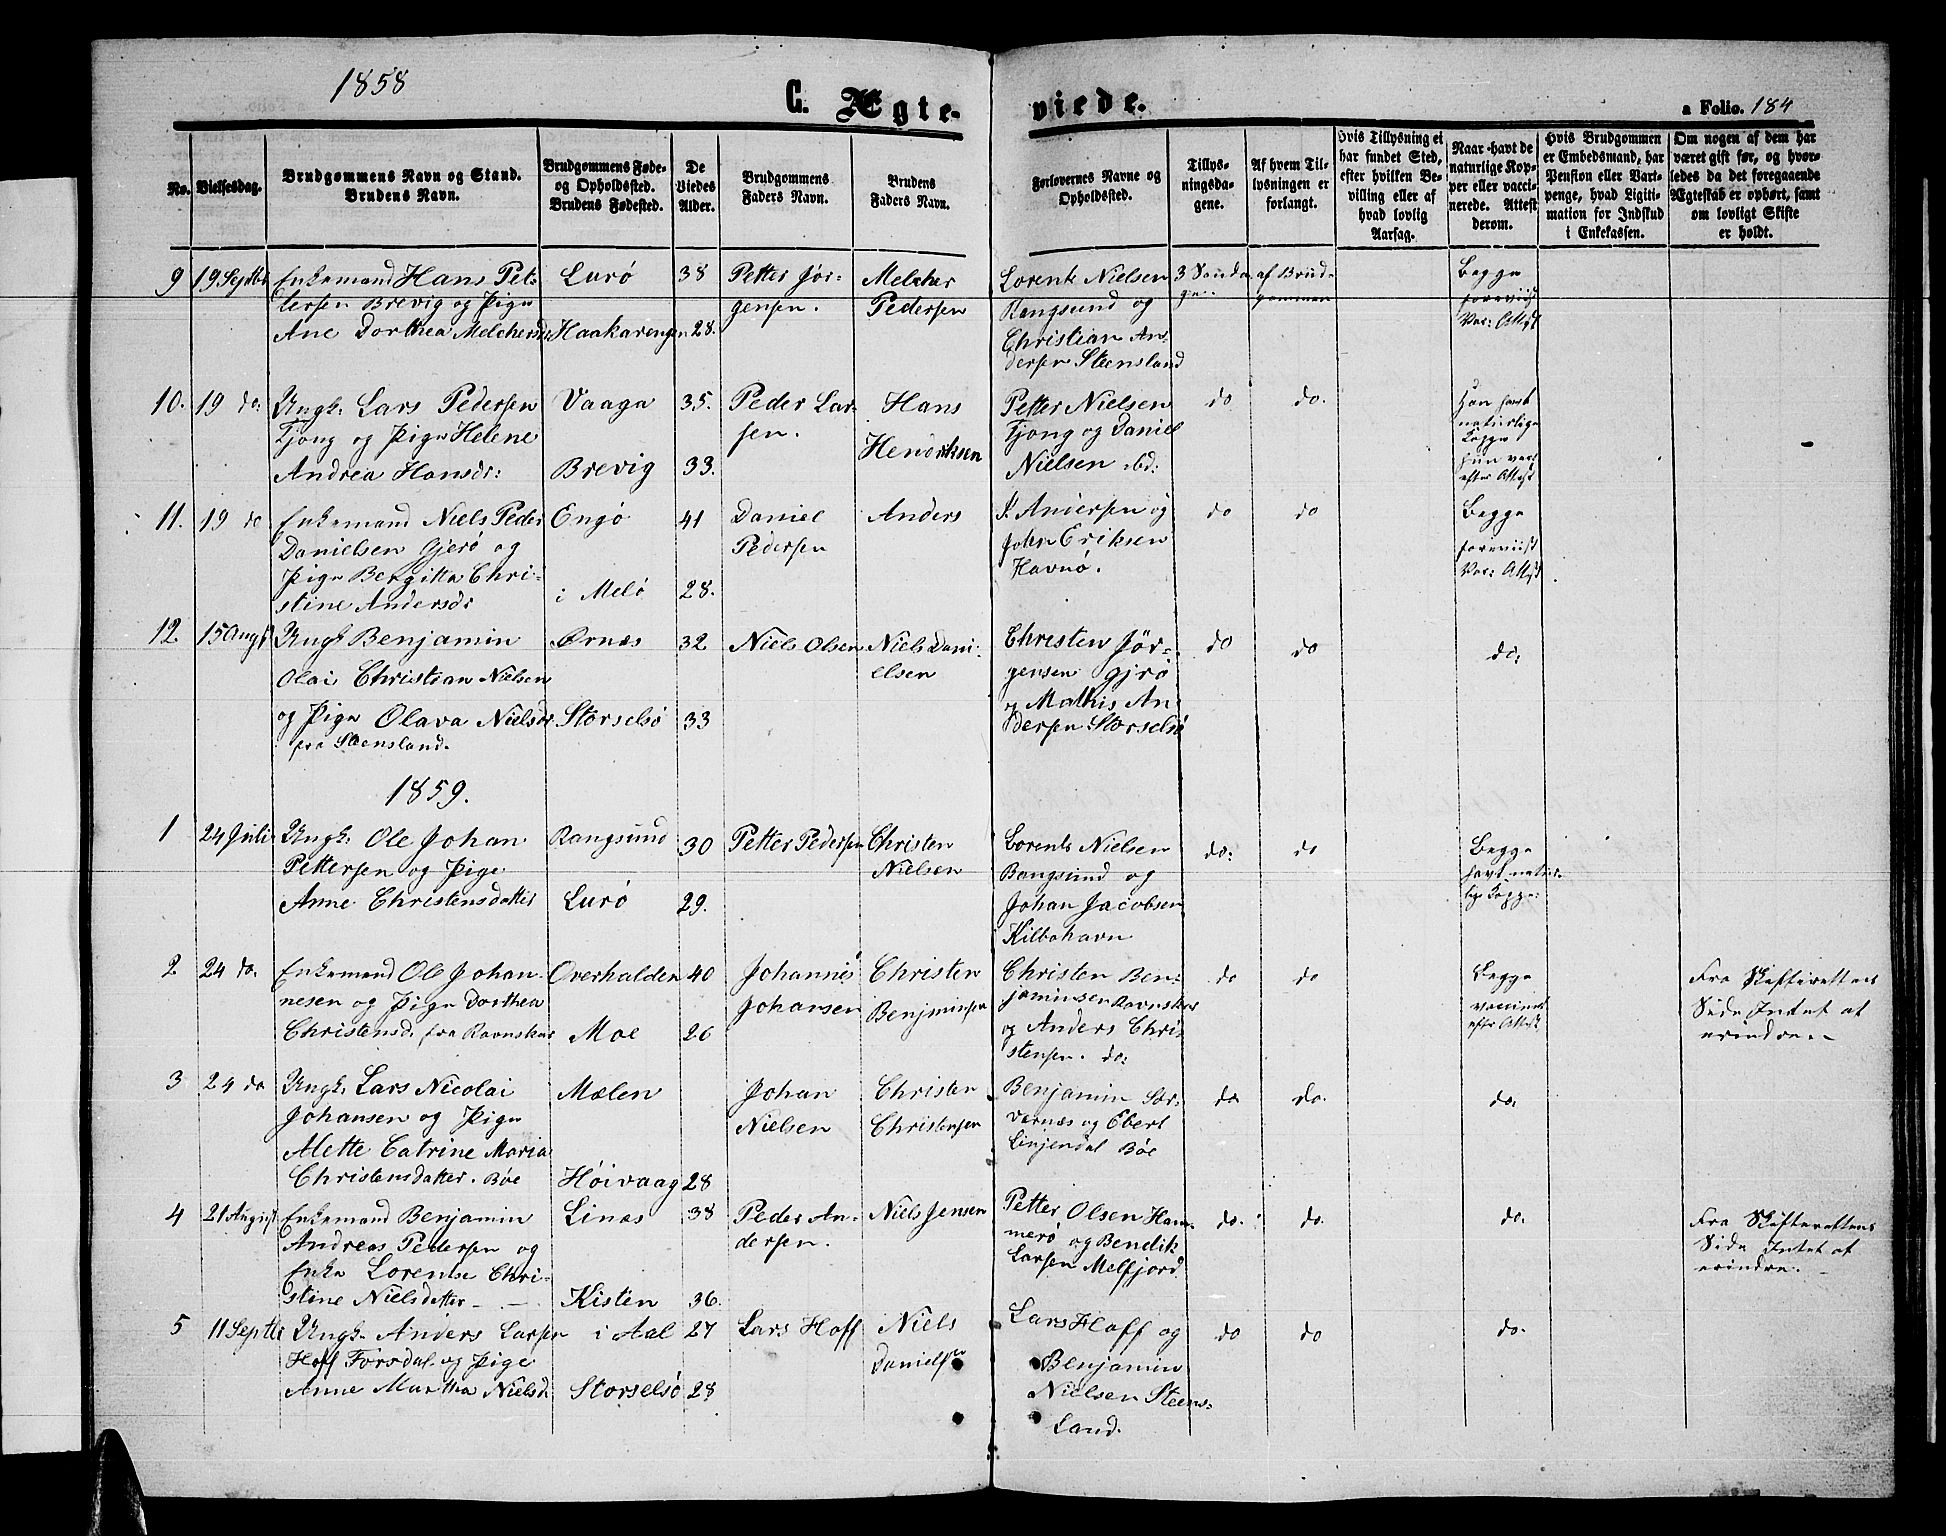 1858
C. Ægte-
viede.
a Folio. 184
No.
Vielsesdag.
Brudgommens Navn og Stand.
Brudens Navn.
Brudgommens Føde-
og Opholdssted.
Brudens Fødested.
De
Viedes
Alder.
Brudgommens
Faders Navn.
Brudens
Faders Navn.
Forlovernes Navne og
Opholdssted.
Tillys-
ningsda-
gene.
Af hvem Til-
lysningen er
forlangt.
Hvis Tillysning ei
har fundet Sted,
efter hvilken Be-
villing eller af
hvad lovlig
Aarsag.
Naar havt de
naturlige Kop-
per eller vacci-
nerede. Attest
derom.
Hvis Brudgommen
er Embedsmand, har
Pension eller Vart-
penge, hvad Ligiti-
mation for Indskud
i Enkekassen.
Om nogen af dem har
været gift før, og hvor-
ledes da det foregaaende
Ægteskab er ophørt, samt
om lovligt Skifte
er holdt.
9 19 Septbr Enkemand Hans Pet- Lurö 38 Petter Jör- Melcher Lorents Nielsen 3 Sønda- af Brud- Begge
tersen Brevig og Pige gensen. Pedersen Rangsund og ge. gommen foreviist
Ane Dorthea Melchersd Haakarengen 28. Christian An- Vac: Attest
dersen Steensland
10. 19 do. Ungk. Lars Pedersen Vaaga 35. Peder Lar- Hans Petter Nielsen do do. Han havt
Tjong og Pige Helene sen. Hendriksen Tjong og Daniel naturlige
Andrea Hansdr: Brevig 33. Nielsen ibd: Kopper
hun vac
efter Attest
11. 19 do Enkemand Niels Peder Engö 41 Daniel Anders P. Andersen og do do Begge
Danielsen Gjerö og Pedersen John Eriksen foreviist
Pige Bergitta Chri- Havnö. Vac: Attest
stine Andersdr i Melö 28.
12. 15 Augst Ungk Benjamin Ørnæs 32 Niels Olsen Niels Dani- Christen Jör- do do do:
Olai Christian Nielsen elsen gensen Gjrö
og Pige Olava Nielsdr Storselsö 33 og Mathis An-
fra Steensland. dersen Storselsö
1859.
1 24 Juli Ungk. Ole Johan Rangsund 30 Petter Pedersen Christen Lorents Nielsen do: do Begge
Pettersen og Pige Nielsen Rangsund og havt natur-
Anne Christensdatter Lurö 29. Johan Jacobsen lige Kopper
Kilbohavn
2 24 do. Enkemand Ole Johan- Overhalden 40 Johannes Christen Christen Ben- do do Begge Fra Skifterettens
nesen og Pige Dorthea Johansen Benjminsen jaminsen Ravnskar vaccineret Side Intet at
Christensd. fra Ravnskar Moe 26 og Anders Chri- efter Attest erindre.
stensen. do:
3 24 do Ungk. Lars Nicolai Mælen Johan Christen Benjamin Sør- do. do. do.
Johansen og Pige Nielsen Christensen værnæs og Ebert
Mette Catrine Maria Linjendal Böe
Christensdatter. Böe Höivaag 28
4 21 August Enkemand Benjamin Linæs 38 Peder An- Niels Jensen Petter Olsen Ham- do. do. do. Fra Skifterettens
Andreas Pedersen og dersen. merö og Bendik Side Intet at
Enke Lorentse Chri- Larsen Melfjord erindre.
stine Nielsdatter Kisten 36.
5 11 Septbr Ungk. Anders Larsen i Aal 27 Lars Hoff Niels Lars Hoff og do do do.
Hoff Forsdal og Pige Danielsen Benjamin
Anne Martha Nielsd. Storselsö 28 Nielsen Steens-
land.